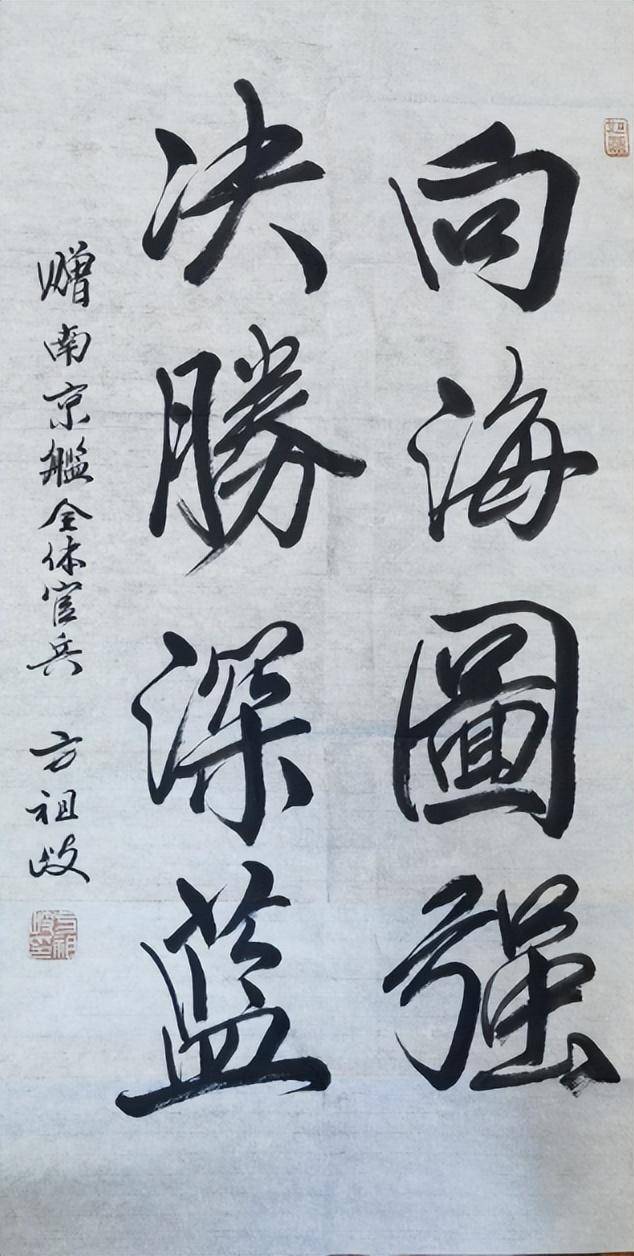 向海圖强
决勝深蓝
赠南京艦全体官兵 方祖岐